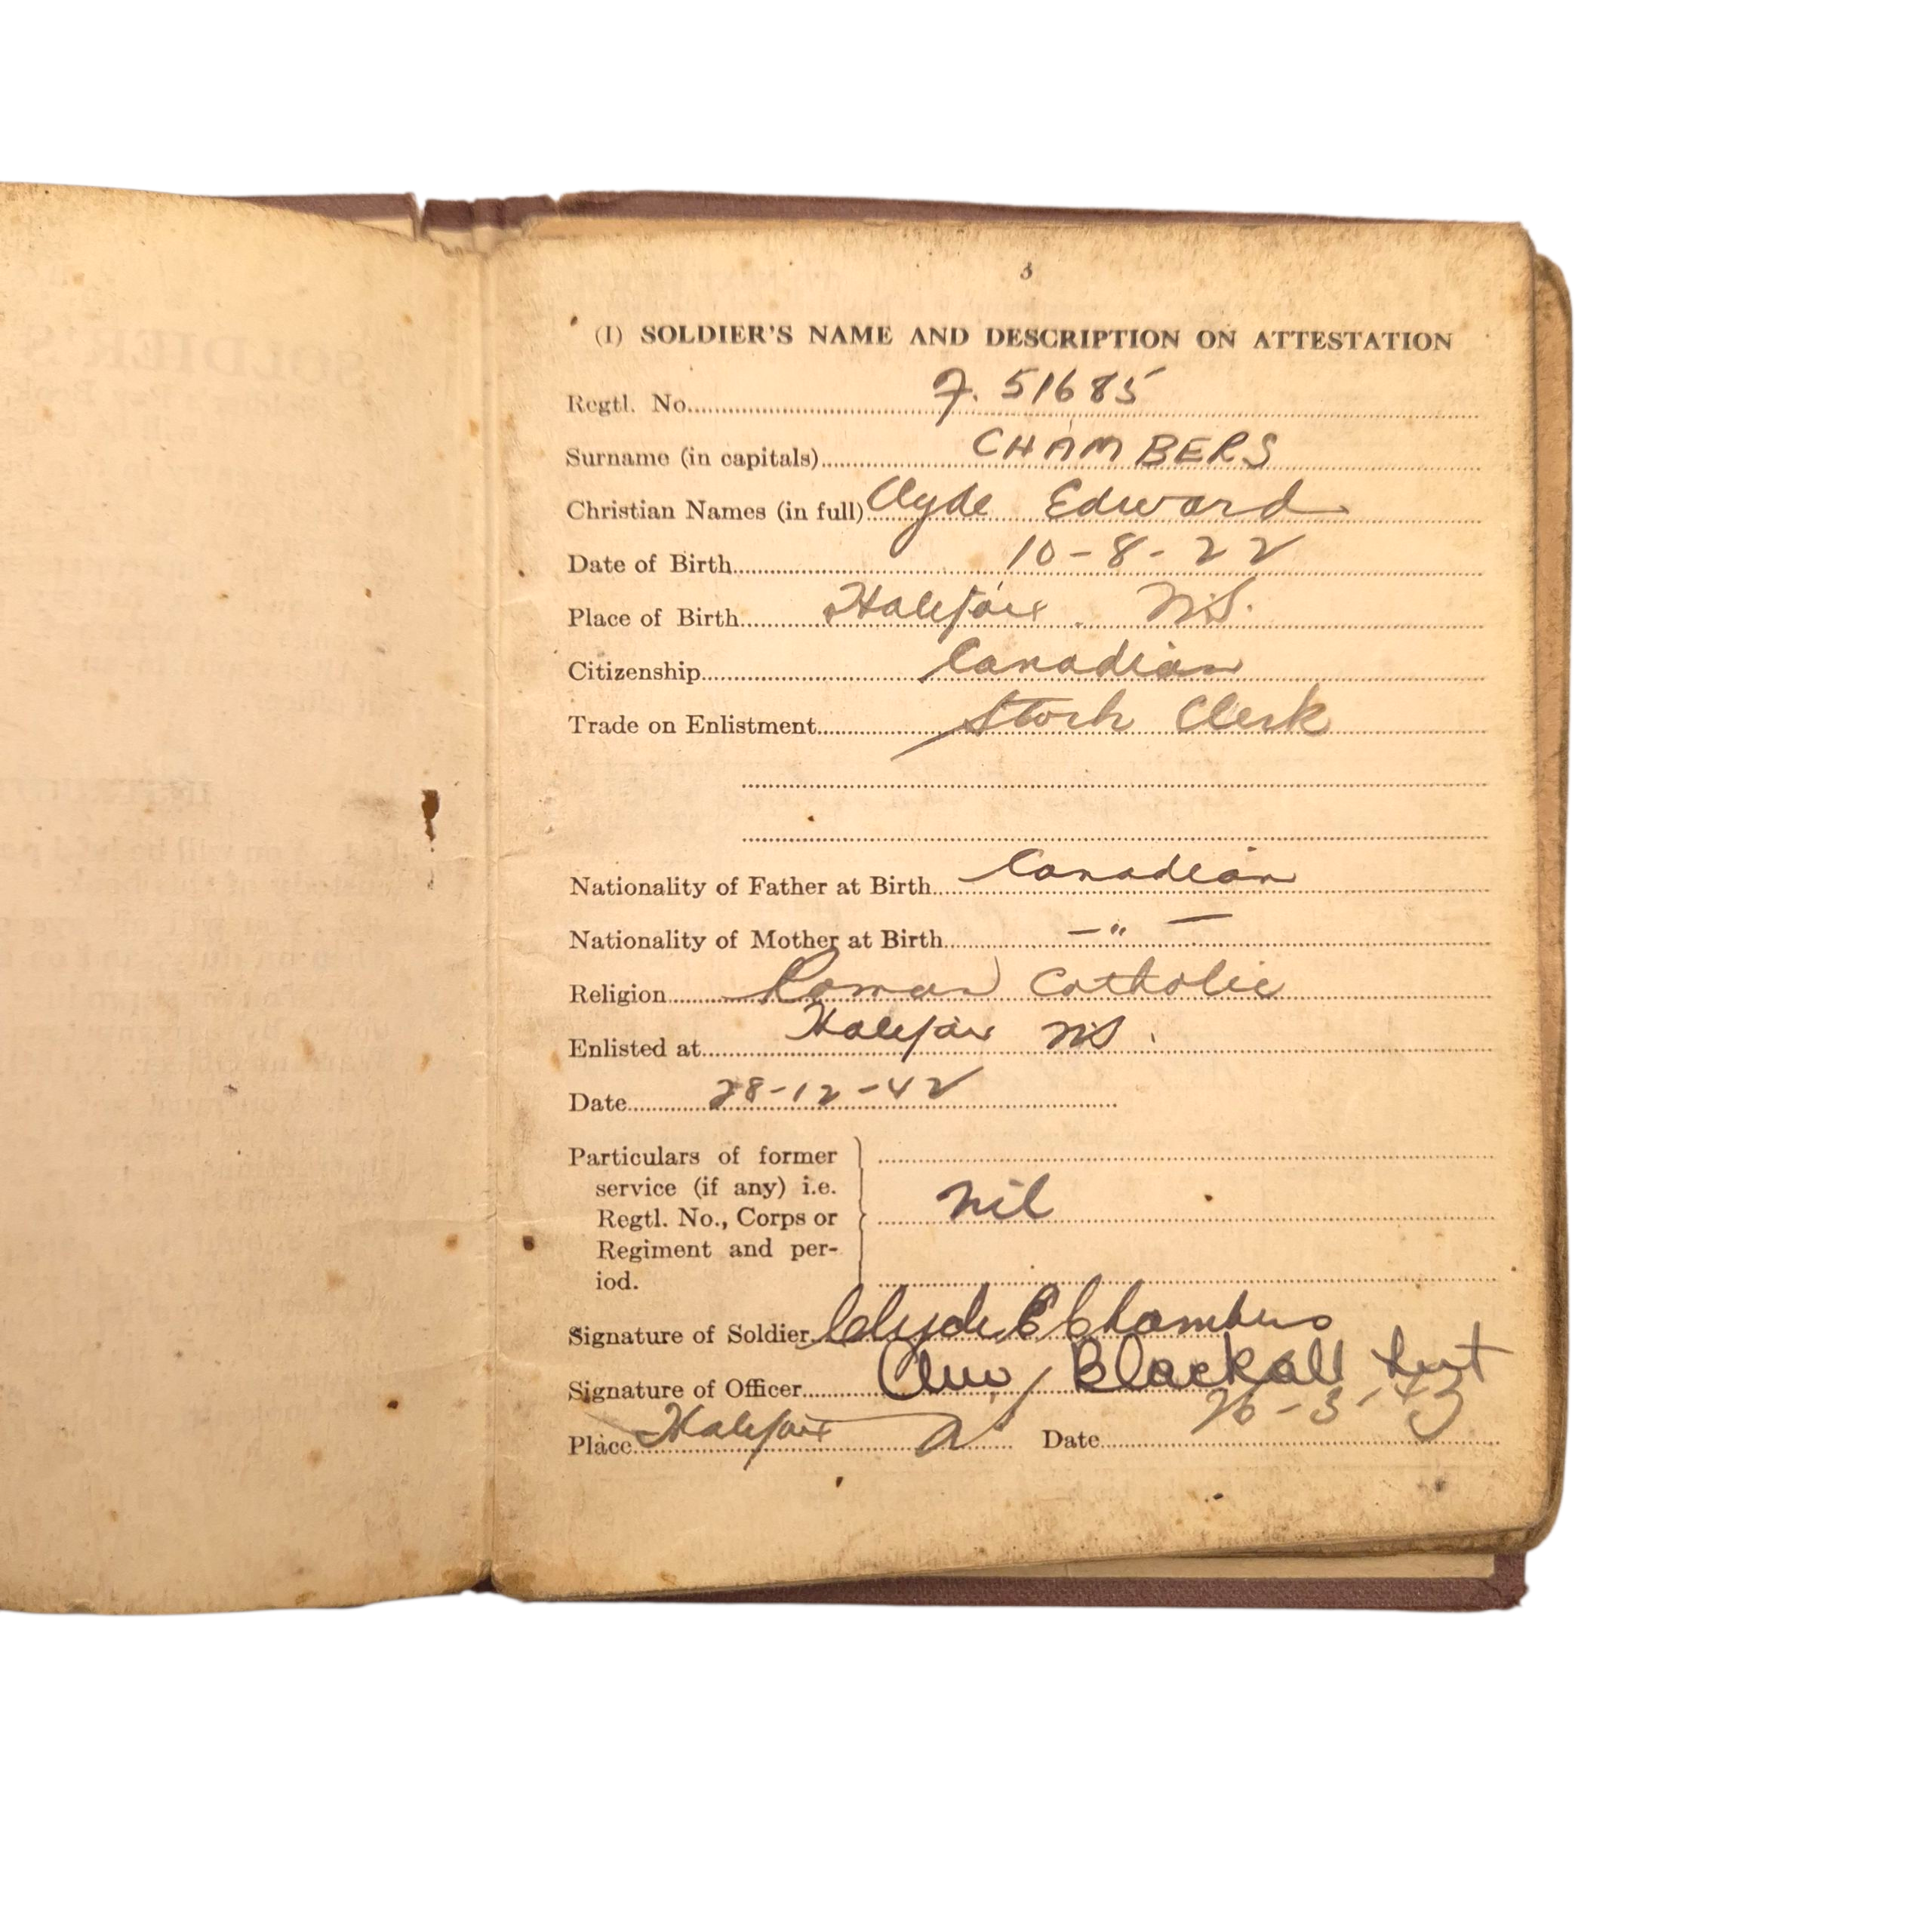 3
(I) SOLDIER'S NAME AND DESCRIPTION ON ATTESTATION
Regtl. No. F. 51685
Surname (in capitals) CHAMBERS
Christian Names (in full) Clyde Edward
Date of Birth 10-8-22
Place of Birth Halifax. N.S.
Citizenship Canadian
Trade on Enlistment Stock Clerk
Nationality of Father at Birth Canadian
Nationality of Mother at Birth — " —
Religion Roman Catholic
Enlisted at Halifax NS.
Date 28-12-42
Particulars of former
service (if any) i.e.
Regtl. No., Corps or nil
Regiment and per-
iod.
Signature of Soldier Clyde E Chambers
Signature of Officer Blackall Lieut
Place Halifax Date 26-3-43